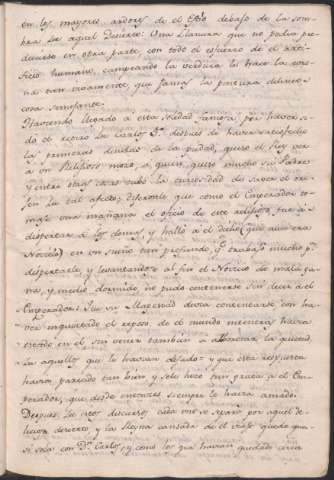 en los mayores ardores de el Estio debajo de la som-
bra de aquel Desierto. Una llanura que no podia pro-
ducirlo en otra parte, con todo el esfuerzo de el arti-
ficio humano, campeando la verdura la hacia la coro-
na tan vivamente, que jamas la pintura delineo
cosa semejante.
Haviendo llegado a esta soledad famosa, por haver si-
do el reposo de Carlos 5º. despues de haver satisfecho
las primeras deudas de la piedad, quiso el Rey ver
a un Religioso mozo, a quien quiso mucho su Padre
y entre otras cosas tubo la curiosidad de saver el ori-
gen de tal afecto; Dijeronle que como el Emperador to-
mase una mañana el oficio de este religioso, fue a
dispertar a los demas, y halló a él dicho, que aun era
Novicio, en un sueño tan profundo, que trabajo mucho por
dispertarle, y levantandose al fin el Novicio de mala ga-
na, y medio dormido, no pudo contenerse sin decir a el
Emperador: Que su Magestad devia contentarse con ha-
ver inquietado el reposo de el mundo mientras havia
estado en el sin venir tambien a la quietud
de aquellos que le havian dejado= y que esta respuesta
havia parecido tan bien y solo hizo tan grata a el Em-
perador, que desde entonces siempre le havia amado.
Despues de estos discursos cada uno se separó por aquel de-
licioso desierto, y la Reyna cansada de el paseo quedo qua-
si sola con Dn. Carlos, y como los que havian quedado cerca